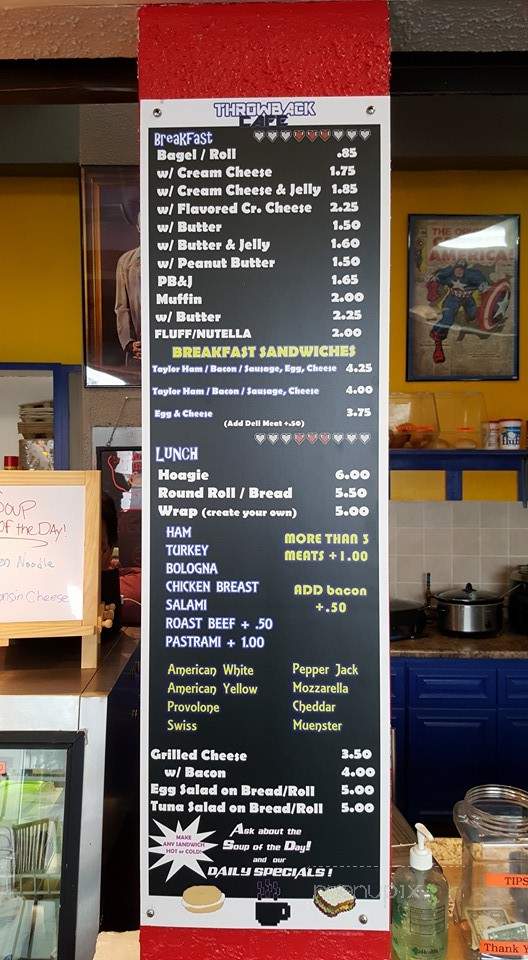 THROWBACK
CAFE
Breakfast
Bagel / Roll .85
w/ Cream Cheese 1.75
w/ Cream Cheese & Jelly 1.85
w/ Flavored Cr. Cheese 2.25
w/ Butter 1.50
w/ Butter & Jelly 1.60
w/ Peanut Butter 1.50
PB&J 1.65
Muffin 2.00
w/ Butter 2.25
FLUFF/NUTELLA 2.00
BREAKFAST SANDWICHES
Taylor Ham / Bacon / Sausage, Egg, Cheese 4.25
Taylor Ham / Bacon / Sausage, Cheese 4.00
Egg & Cheese 3.75
(Add Deli Meat +.50)
LUNCH
Hoagie 6.00
Round Roll / Bread 5.50
Wrap (create your own) 5.00
HAM
TURKEY
BOLOGNA
CHICKEN BREAST
SALAMI
ROAST BEEF + .50
PASTRAMI + 1.00
MORE THAN 3
MEATS +1.00
ADD bacon
+.50
American White
American Yellow
Provolone
Swiss
Pepper Jack
Mozzarella
Cheddar
Muenster
Grilled Cheese 3.50
w/ Bacon 4.00
Egg Salad on Bread/Roll 5.00
Tuna Salad on Bread/Roll 5.00
MAKE
ANY SANDWICH
HOT or COLD!
Ask about the
Soup of the Day!
and our
DAILY SPECIALS!
menupix
SOUP
of the DAY!
Noodle
Cheese
THE
AMERICA!
fluff
TIPS
Thank